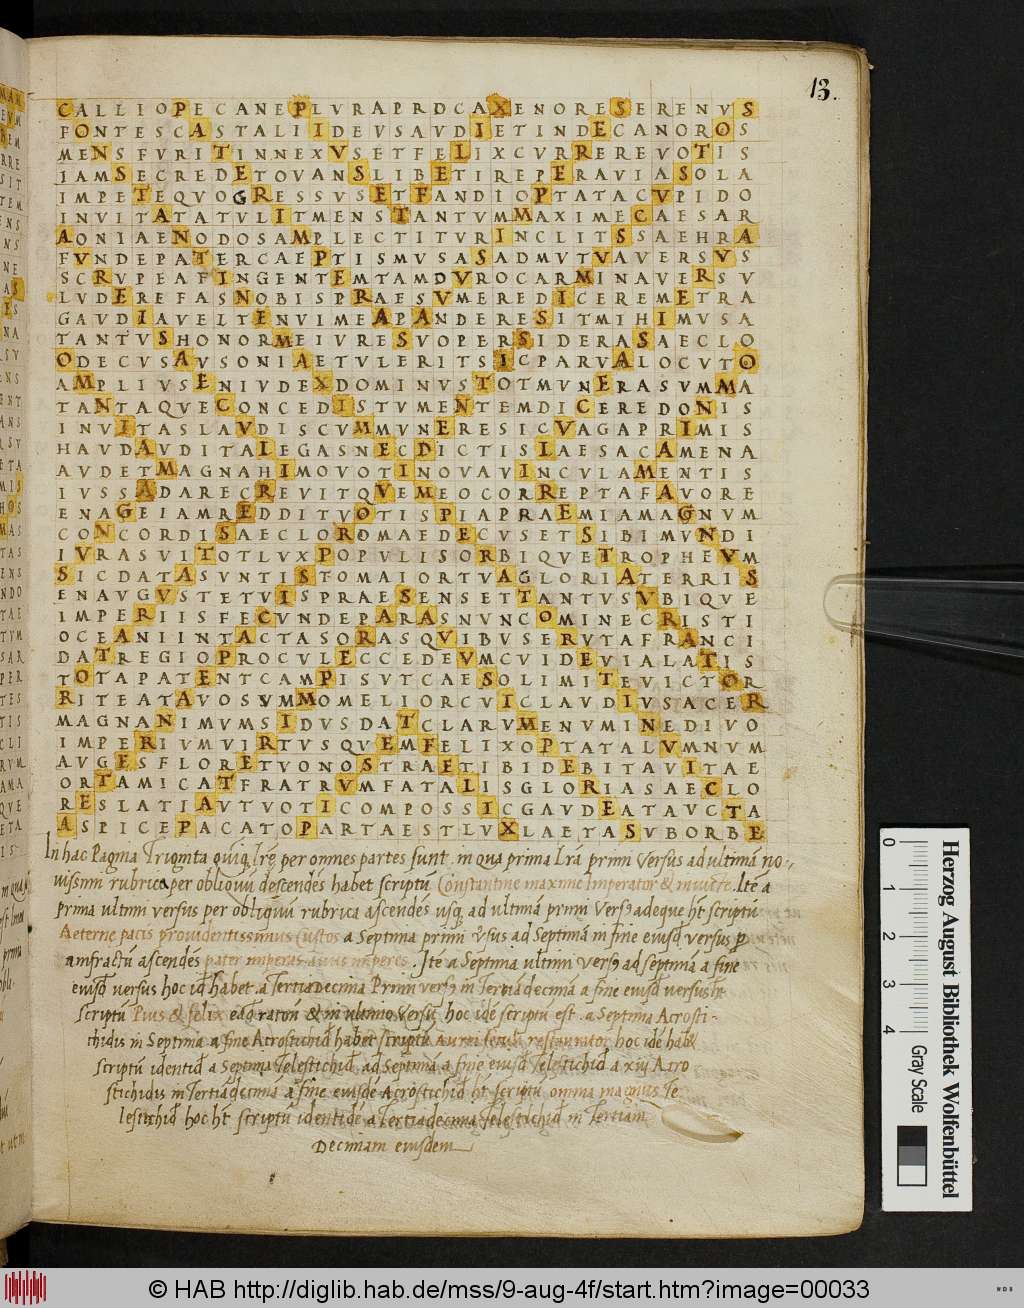 13.
CALLIOPECANEPLVRAPRDCAXENORESERENVS
FONTESCASTALIIDEVSAVDIETINDECANOROS
MENSFVRITINNEXVSETFELIXCVRREREVOTIS
IAMSECREDETOVANSLIBETIREPERAVIASOLA
IMPETEQVOGRESSVSETFANDIOPTATACVPIDO
INVITATATVLITMENSTANTVMMAXIMECAESAR
AONIAENODOSAMPLECTITVRINCLITSSAEHRA
FVNDEPATERCAEPTISMVSASADMVTVAVERSVS
SCRVPEAFINGENTEMTAMDVROCARMINAVERSV
LVDEREFASNOBISPRAESVMEREDICEREMETRA
GAVDIAVELTENVIMEAPANDERESITMIHIMVSA
TANTVSHONORMEIVRESVOPERSIDERASAECLO
ODECVSAVSONIAETVLERITSICPARVALOCVTO
AMPLIVSENIVDEXDOMINVSTOTMVNERASVMMA
TANTAQVECONCEDISTVMENTEMDICEREDONIS
INVITASLAVDISCVMMVNERESICVAGAPRIMIS
HAVDAVDITALEGASNECDICTISLAESACAMENA
AVDETMAGNAHIMOVOTINOVAVINCVLAMENTIS
IVSSADARECREVITQVEMEOCORREPTAFAVORE
ENAGEIAMREDDITVOTISPIAPRAEMIAMAGNVM
CONCORDISAECLOROMAEDECVSETSIBIMVNDI
IVRASVITOTLVXPOPVLISORBIQVETROPHEVM
SICDATASVNTISTOMAIORTVAGLORIATERRIS
ENAVGVSTETVISPRAESENSETTANTVSVBIQVE
IMPERIISFECVNDEPARASNVNCOMINECRISTI
OCEANIINTACTASORASQVIBVSERVTAFRANCI
DATREGIOPROCVLECCEDEVMCVIDEVIALATIS
TOTAPATENTCAMPISVTCAESOLIMITEVICTOR
RITEATAVOSVMMOMELIORCVICLAVDIVSACER
MAGNANIMVMSIDVSDATCLARVMENVMINEDIVO
IMPERIVMVIRTVSQVEMFELIXOPTATALVMNVM
AVGESFLORETVONOSTRAETIBIDEBITAVITAE
ORTAMICATFRATRVMFATALISGLORIASAECLO
RESLATIAVTVOTICOMPOSSICGAVDEATAVCTA
ASPICEPACATOPARTAESTLVXLAETASVBORBE
In hac Pagina Triginta quinq lrę per omnes partes sunt. in qua prima Lra primi versus ad ultimā no-
uissimi rubrica per obliquū descendēs habet scriptū Constantine maxime Imperator & inuicte. Itē a
prima ultimi versus per obliquū rubrica ascendēs usq ad ultimā primi versꝰ adeque ht scriptū
Aeterne pacis prouidentissimus Custos a Septima primi v̄sus ad Septimā in fine eiusđ versus p
amfractū ascendēs pater imperas auus imperes. Itē a Septima ultimi versꝰ ad septimā a fine
eiusđ versus hoc iđ habet. a Tertiadecima Primi versꝰ in Tertiadecimā a fine eiusđ versus ht
scriptū Pius & felix & in ultimo versu hoc idē scriptū est. a Septima Acrosti-
chidis in Septimā a fine Acrostichiđ habet scriptū Aurei secul restaurator hoc idē habt
scriptū identiđ a Septima Telestichiđ ad Septimā a fine eiusđ Telestichiđ a xiij Acro
stichidis in Tertiadecimā a fine eiusdē Acrostichiđ ht scriptū omnia magnus Te
lestichiđ hoc ht scriptū identidē a Tertiadecima Telestichiđ in Tertiam
Decimam eiusdem
Herzog August Bibliothek Wolfenbüttel
0 1 2 3 4
Gray Scale
© HAB http://diglib.hab.de/mss/9-aug-4f/start.htm?image=00033